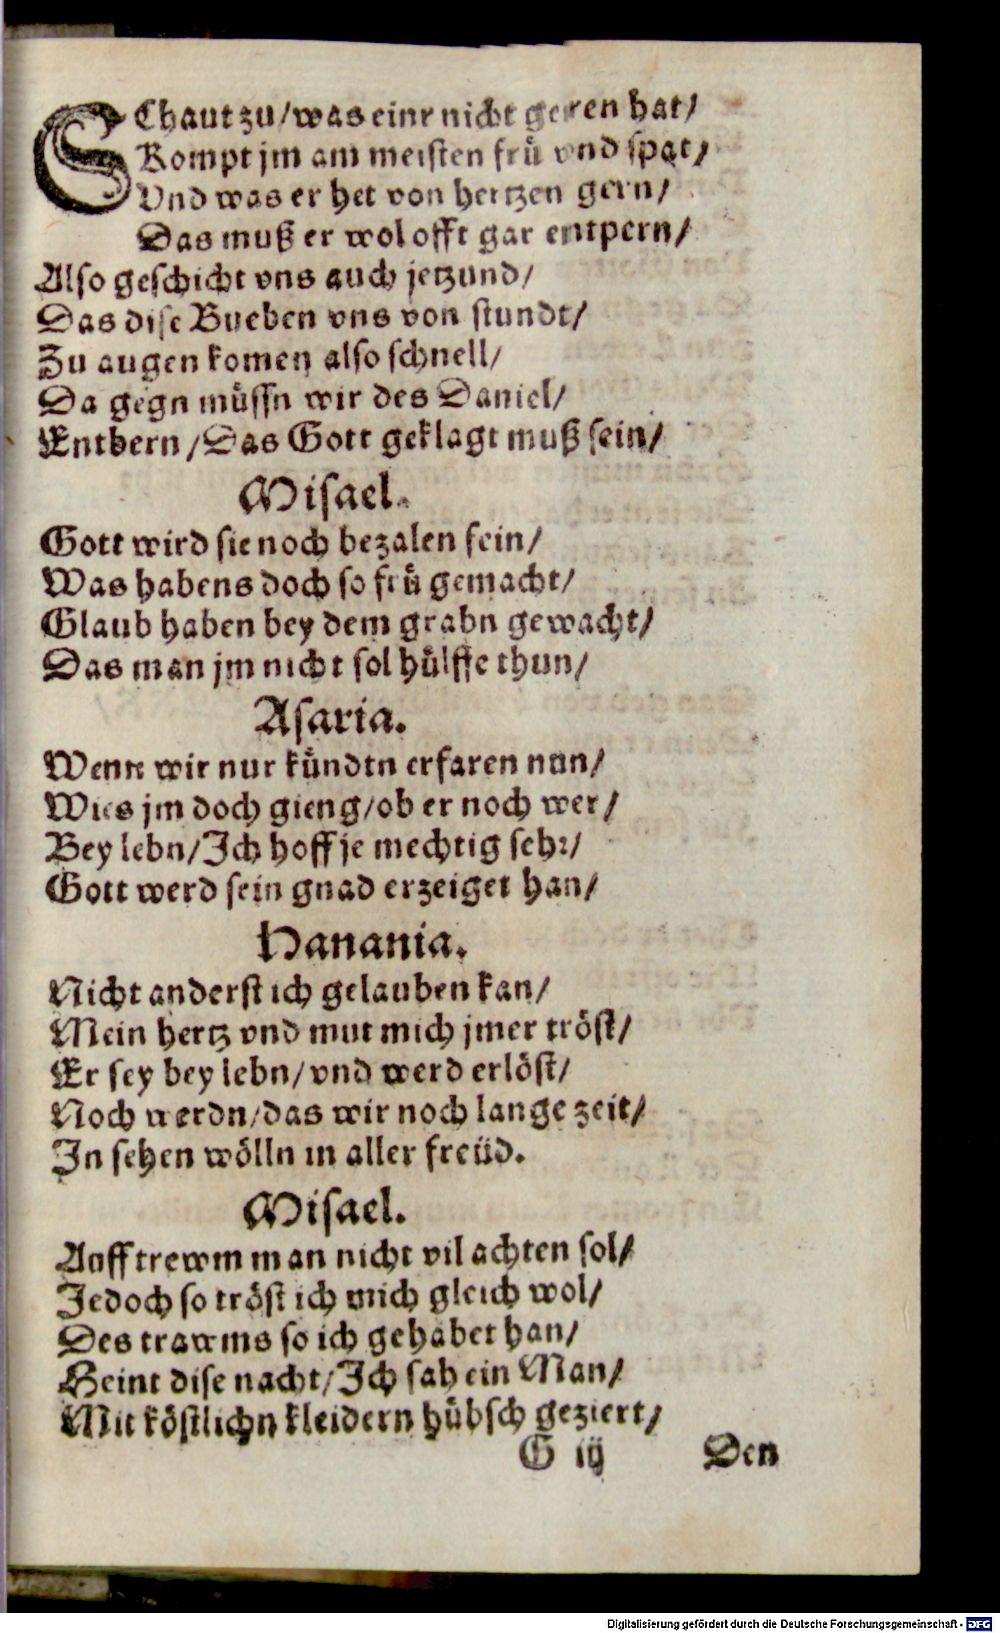 SChaut zu/was einr nicht geren hat/
Kompt jm am meisten frü vnd spat/
Vnd was er het von hertzen gern/
Das muß er wol offt gar entpern/
Also geschicht vns auch jetzund/
Das dise Bueben vns von stundt/
Zu augen komen also schnell/
Da gegn müssn wir des Daniel/
Entbern/Das Gott geklagt muß sein/
Misael.
Gott wird sie noch bezalen fein/
Was habens doch so frü gemacht/
Glaub haben bey dem grabn gewacht/
Das man jm nicht sol hülffe thun/
Asaria.
Wenn wir nur kündtn erfaren nun/
Wies jm doch gieng/ob er noch wer/
Bey lebn/Ich hoff je mechtig sehr/
Gott werd sein gnad erzeiget han/
Hanania.
Nicht anderst ich gelauben kan/
Mein hertz vnd mut mich jmer tröst/
Er sey bey lebn/vnd werd erlöst/
Noch werdn/das wir noch lange zeit/
In sehen wölln in aller freüd.
Misael.
Auff trewm man nicht vil achten sol/
Jedoch so tröst ich mich gleich wol/
Des trawms so ich gehabet han/
Heint dise nacht/Ich sah ein Man/
Mit köstlichn kleidern hübsch geziert/
G iij Den
Digitalisierung gefördert durch die Deutsche Forschungsgemeinschaft - DFG